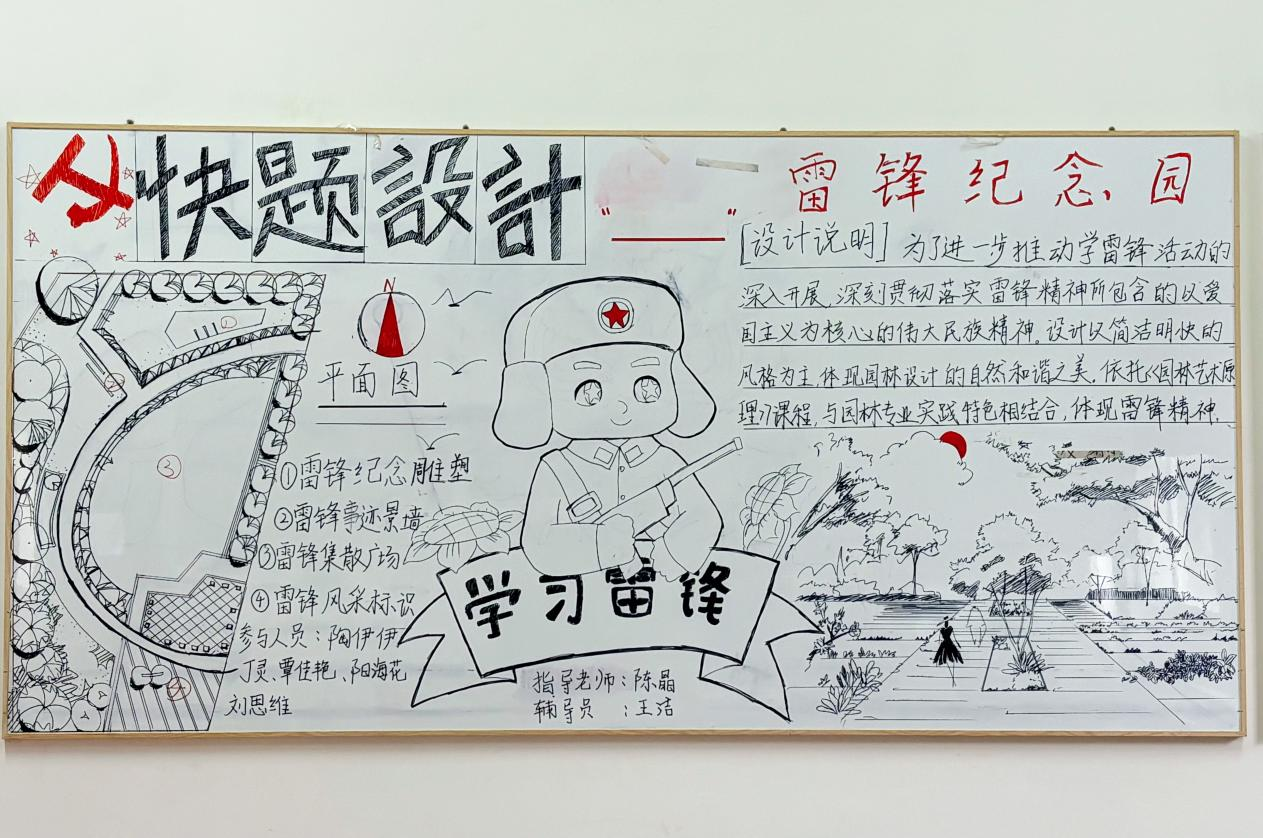 快题設計
“ ”
雷锋纪念园
[设计说明] 为了进一步推动学雷锋活动的
深入开展、深刻贯彻落实雷锋精神所包含的以爱
国主义为核心的伟大民族精神。设计以简洁明快的
风格为主,体现园林设计的自然和谐之美。依托《园林艺术原
理》课程,与园林专业实践特色相结合,体现雷锋精神.
N
平面图
①
③
①雷锋纪念雕塑
②雷锋事迹景墙
③雷锋集散广场
④雷锋风采标识
参与人员:陶伊伊
丁灵、覃佳艳、阳海花
刘思维
学习雷锋
指导老师:陈晶
辅导员 :王洁